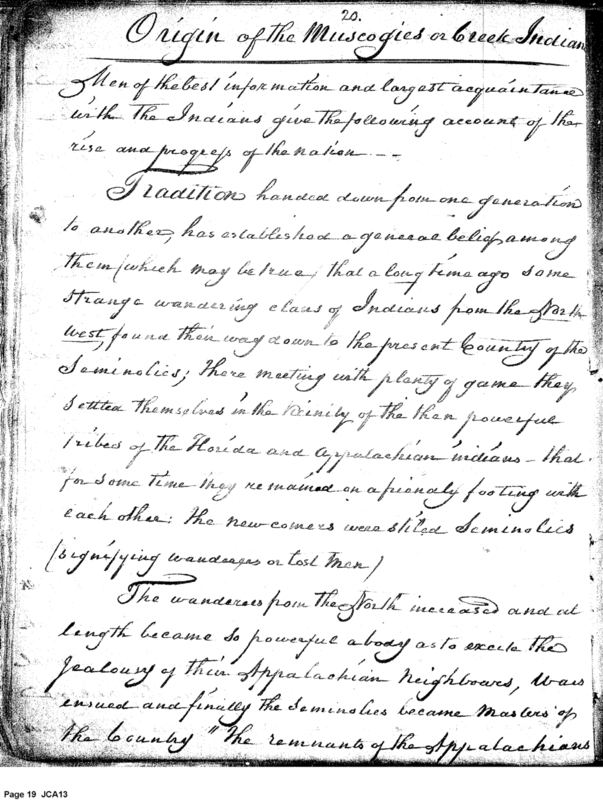 20.
Origin of the Muscogies or Creek Indians
Men of the best information and largest acquaintance
with the Indians give the following account of the
rise and progress of the nation. --
Tradition handed down from one generation
to another, has established a general belief among
them (which may be true) that a long time ago some
strange wandering clans of Indians from the North
West, found their way down to the present Country of the
Seminolies; there meeting with plenty of game they
settled themselves in the vicinity of the then powerful
tribes of the Florida and Appalachian indians - that
for some time they remained on a friendly footing with
each other: the new comers were stiled Seminolies
(signifying wanderers or lost Men)
The wanderers from the North increased and at
length became so powerful a body as to excite the
Jealousy of their Appalachian Neighbours, Wars
ensued and finally the Seminolies became Masters of
the Country " The remnants of the Appalachians
Page 19 JCA13